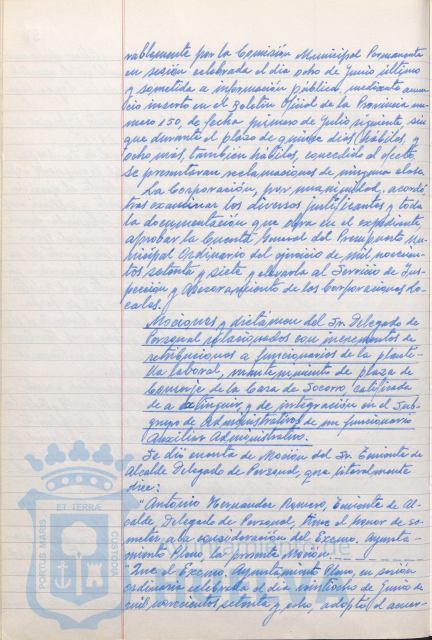 rablemente por la Comisión Municipal Permanente
en sesión celebrada el día ocho de Junio último
y sometida a información pública, mediante anun-
cio inserto en el Boletín Oficial de la Provincia nú-
mero 150, de fecha primero de Julio siguiente, sin
que durante el plazo de quince días hábiles, y
ocho más, también hábiles, concedido al efecto,
se presentaran reclamaciones de ninguna clase.
La Corporación, por unanimidad, acordó
tras examinar los diversos justificantes y toda
la documentación que obra en el expediente,
aprobar la Cuenta General del Presupuesto Mu-
nicipal Ordinario del ejercicio de mil novecien-
tos setenta y siete y elevarla al Servicio de Ins-
pección y Asesoramiento de las Corporaciones Lo-
cales.
Mociones y dictámen del Sr. Delegado de
Personal relacionados con incrementos de
retribuciones a funcionarios de la planti-
lla laboral, mantenimiento de plaza de
Conserje de la Casa de Socorro, calificada
de a extinguir, y de integración en el Sub-
grupo de Administrativos de un funcionario
Auxiliar Administrativo.
Se dió cuenta de Moción del Sr. Teniente de
Alcalde Delegado de Personal, que literalmente
dice:
"Antonio Hernandez Romero, Teniente de Al-
calde, Delegado de Personal, tiene el honor de so-
meter a la consideración del Excmo. Ayunta-
miento Pleno, la presente Moción.
"Que el Excmo. Ayuntamiento Pleno, en sesión
ordinaria celebrada el día veintiocho de Junio de
mil novecientos setenta y ocho, adoptó el acuer-
ET TERRÆ
PORTUS MARIS
CUSTODIA